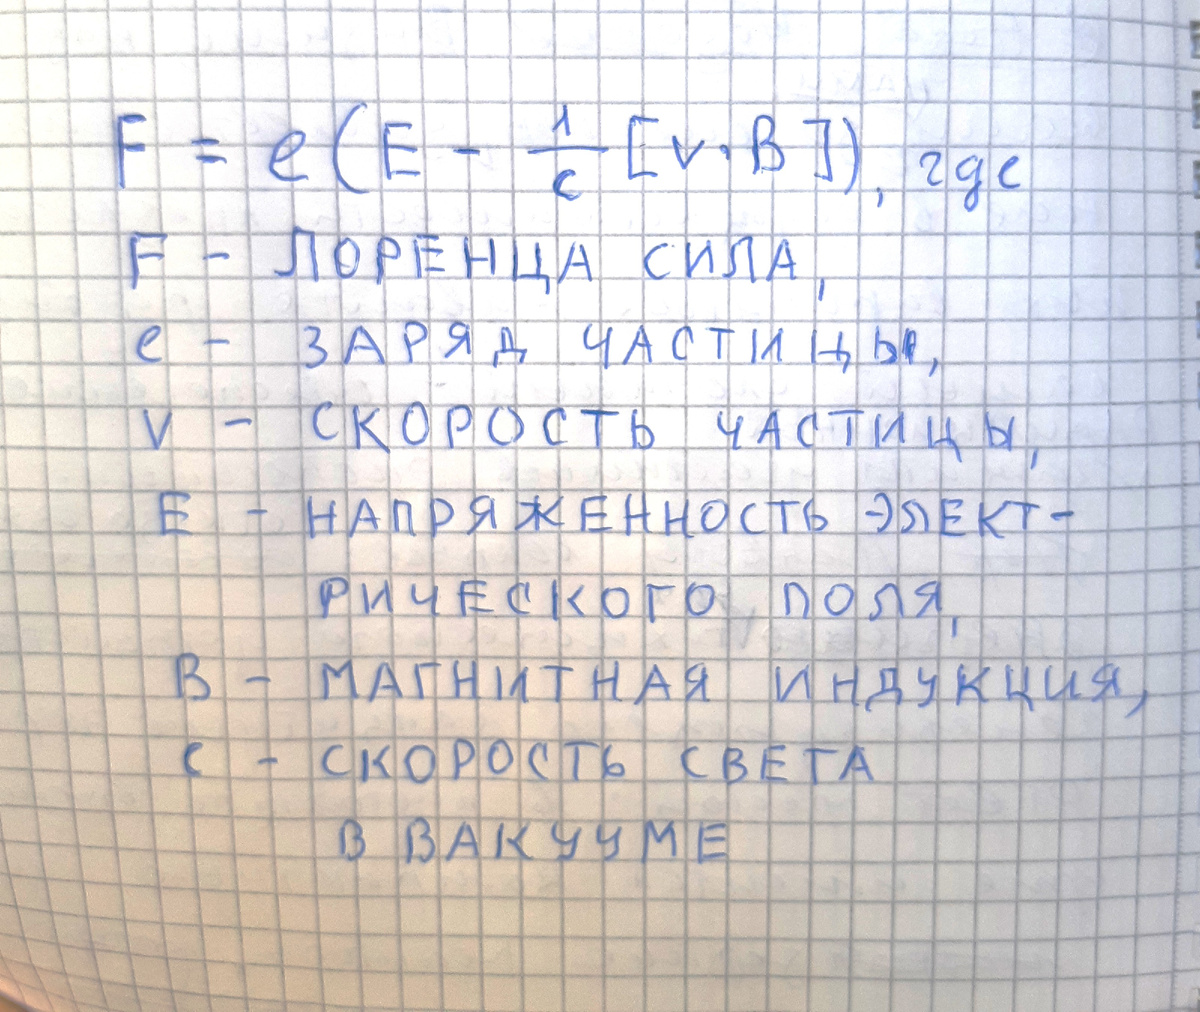 F = e(E - 1/c [v·B]), где
F - ЛОРЕНЦА СИЛА,
e - ЗАРЯД ЧАСТИЦЫ,
v - СКОРОСТЬ ЧАСТИЦЫ,
E - НАПРЯЖЕННОСТЬ ЭЛЕКТ-
РИЧЕСКОГО ПОЛЯ,
B - МАГНИТНАЯ ИНДУКЦИЯ,
c - СКОРОСТЬ СВЕТА
В ВАКУУМЕ